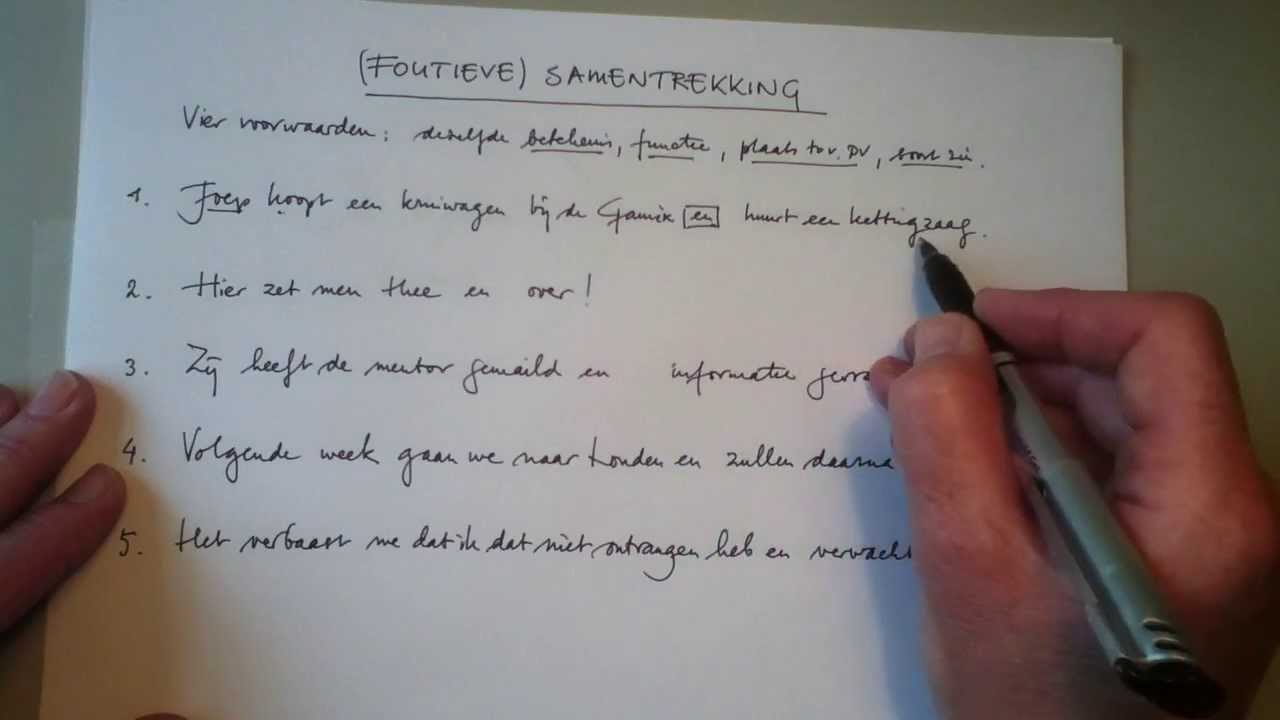 (FOUTIEVE) SAMENTREKKING
Vier voorwaarden: dezelfde betekenis, functie, plaats tov. PV, soort zin.
1. Joep koopt een kruiwagen bij de Gamma en huurt een kettingzaag.
2. Hier zet men thee en over!
3. Zij heeft de mentor gemaild en informatie gevra
4. Volgende week gaan we naar Londen en zullen daarna
5. Het verbaast me dat ik dat niet ontvangen heb en verwacht